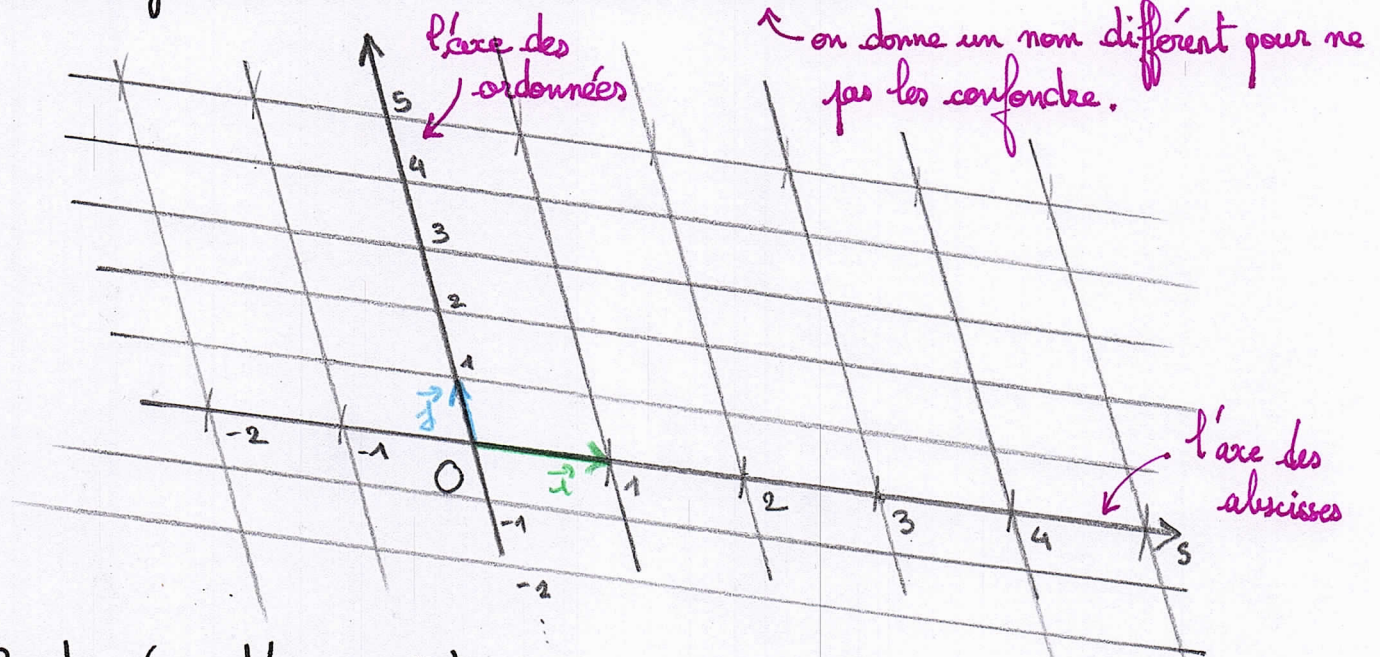 l'axe des
ordonnées
on donne un nom différent pour ne
pas les confondre.
5
4
3
2
1
j
-2
-1
O
i
1
2
3
4
5
-1
-2
l'axe des
abscisses